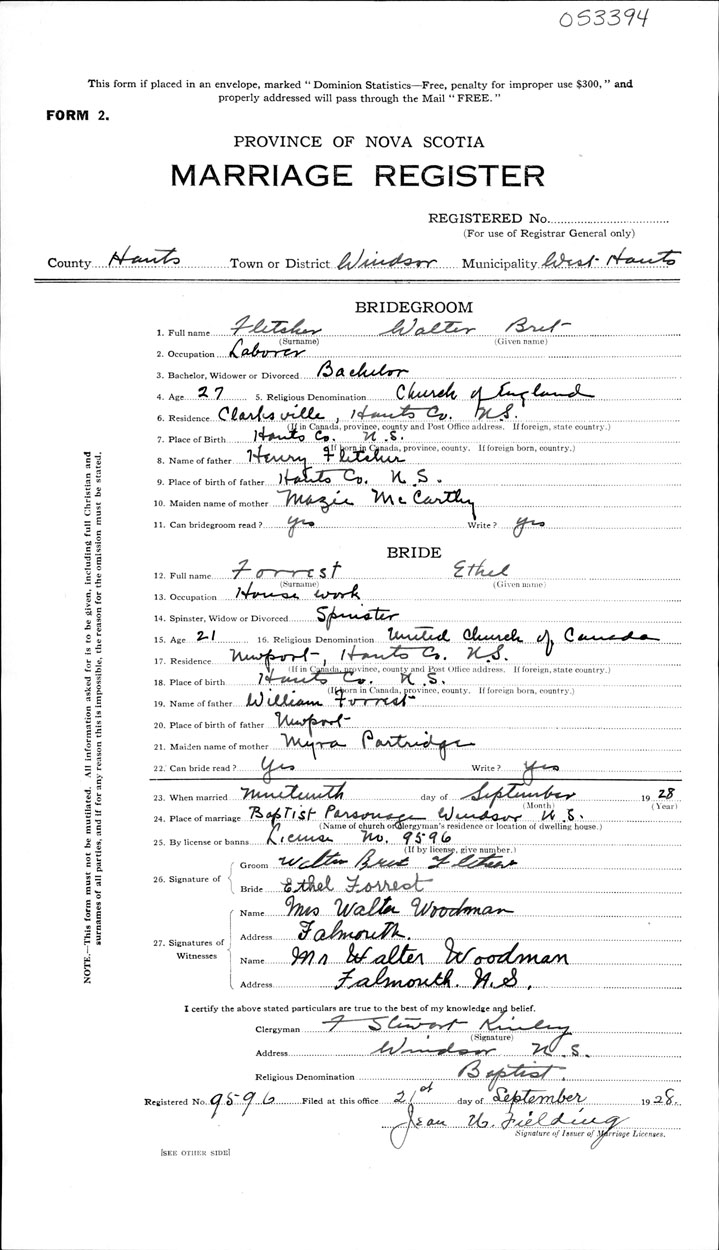 053394
This form if placed in an envelope, marked "Dominion Statistics—Free, penalty for improper use $300," and
properly addressed will pass through the Mail "FREE."
FORM 2.
PROVINCE OF NOVA SCOTIA
MARRIAGE REGISTER
REGISTERED No.
(For use of Registrar General only)
County Hants Town or District Windsor Municipality West Hants
BRIDEGROOM
1. Full name Fletcher Walter Bret
(Surname) (Given name)
2. Occupation Laborer
3. Bachelor, Widower or Divorced Bachelor
4. Age 27 5. Religious Denomination Church of England
6. Residence Clarksville, Hants Co. N.S.
(If in Canada, province, county and Post Office address. If foreign, state country.)
7. Place of Birth Hants Co. N.S.
(If born in Canada, province, county. If foreign born, country.)
8. Name of father Henry Fletcher
9. Place of birth of father Hants Co. N.S.
10. Maiden name of mother Mazie McCarthy
11. Can bridegroom read? yes Write? yes
BRIDE
12. Full name Forrest Ethel
(Surname) (Given name)
13. Occupation House work
14. Spinster, Widow or Divorced Spinster
15. Age 21 16. Religious Denomination United Church of Canada
17. Residence Newport, Hants Co. N.S.
(If in Canada, province, county and Post Office address. If foreign, state country.)
18. Place of birth Hants Co. N.S.
(If born in Canada, province, county. If foreign born, country.)
19. Name of father William Forrest
20. Place of birth of father Newport
21. Maiden name of mother Myra Partridge
22. Can bride read? yes Write? yes
23. When married nineteenth day of September 1928
(Month) (Year)
24. Place of married Baptist Parsonage Windsor N.S.
(Name of church or clergyman's residence or location of dwelling house.)
25. By license or banns License No. 9596
(If by license, give number.)
26. Signature of Groom Walter Bret Fletcher
Bride Ethel Forrest
27. Signatures of Witnesses
Name Mrs Walter Woodman
Address Falmouth.
Name Mr Walter Woodman
Address Falmouth. N.S.
I certify the above stated particulars are true to the best of my knowledge and belief.
Clergyman F Stewart Kinley
(Signature)
Address Windsor N.S.
Religious Denomination Baptist.
Registered No. 9596 Filed at this office 21st day of September 1928.
Jean U. Fielding
Signature of Issuer of Marriage Licenses.
[SEE OTHER SIDE]
NOTE.—This form must not be mutilated. All information asked for is to be given, including full Christian and
surnames of all parties, and if for any reason this is impossible, the reason for the omission must be stated.